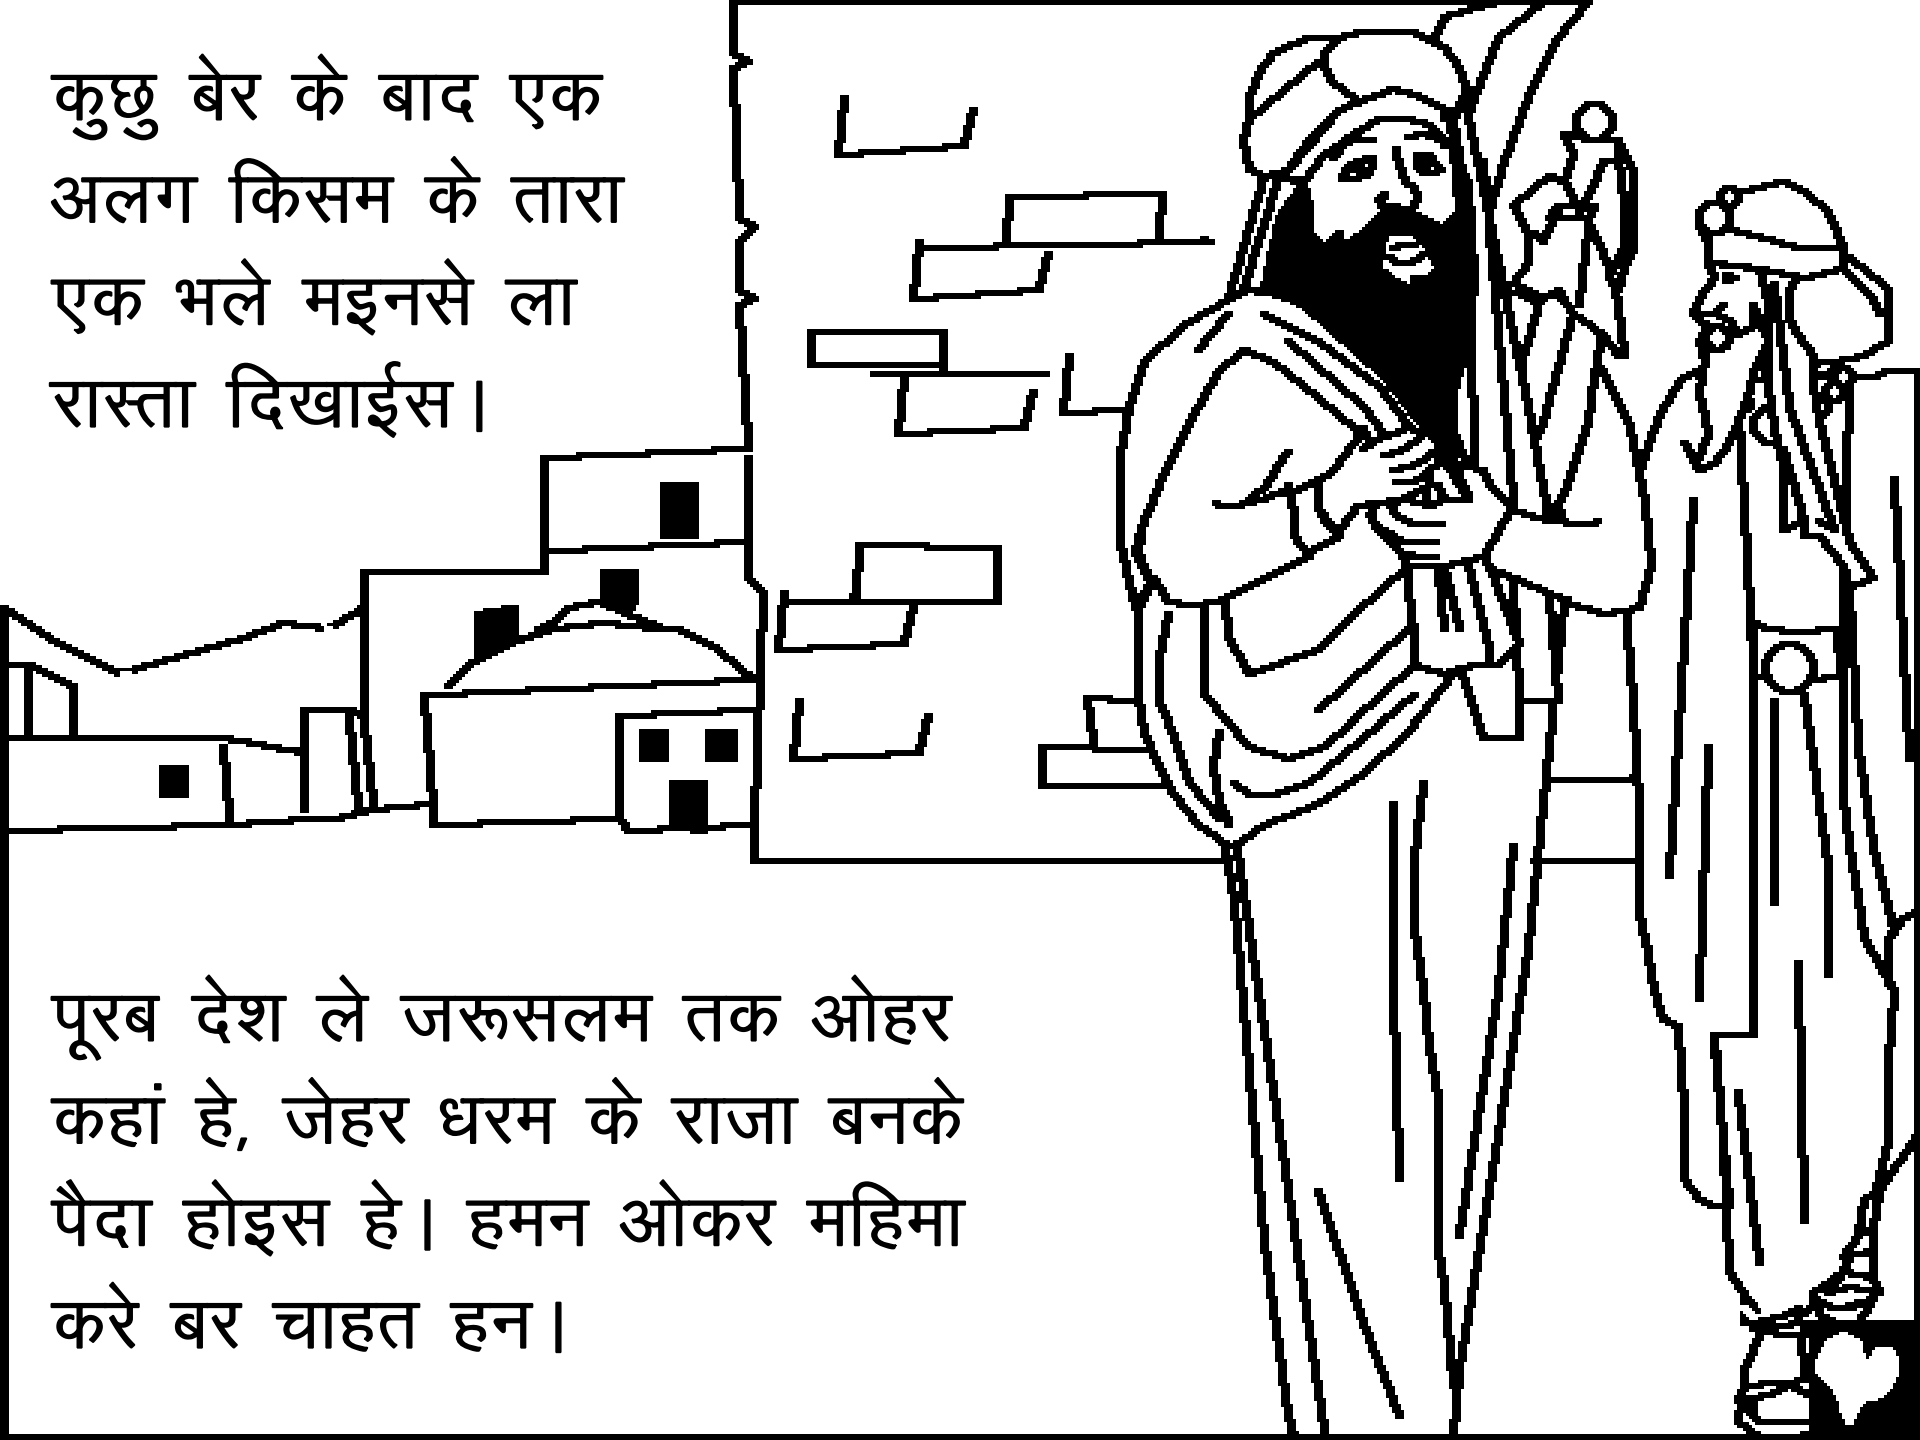 कुछु बेर के बाद एक
अलग किसम के तारा
एक भले मइनसे ला
रास्ता दिखाईस।
पूरब देश ले जरूसलम तक ओहर
कहां हे, जेहर धरम के राजा बनके
पैदा होइस हे। हमन ओकर महिमा
करे बर चाहत हन।